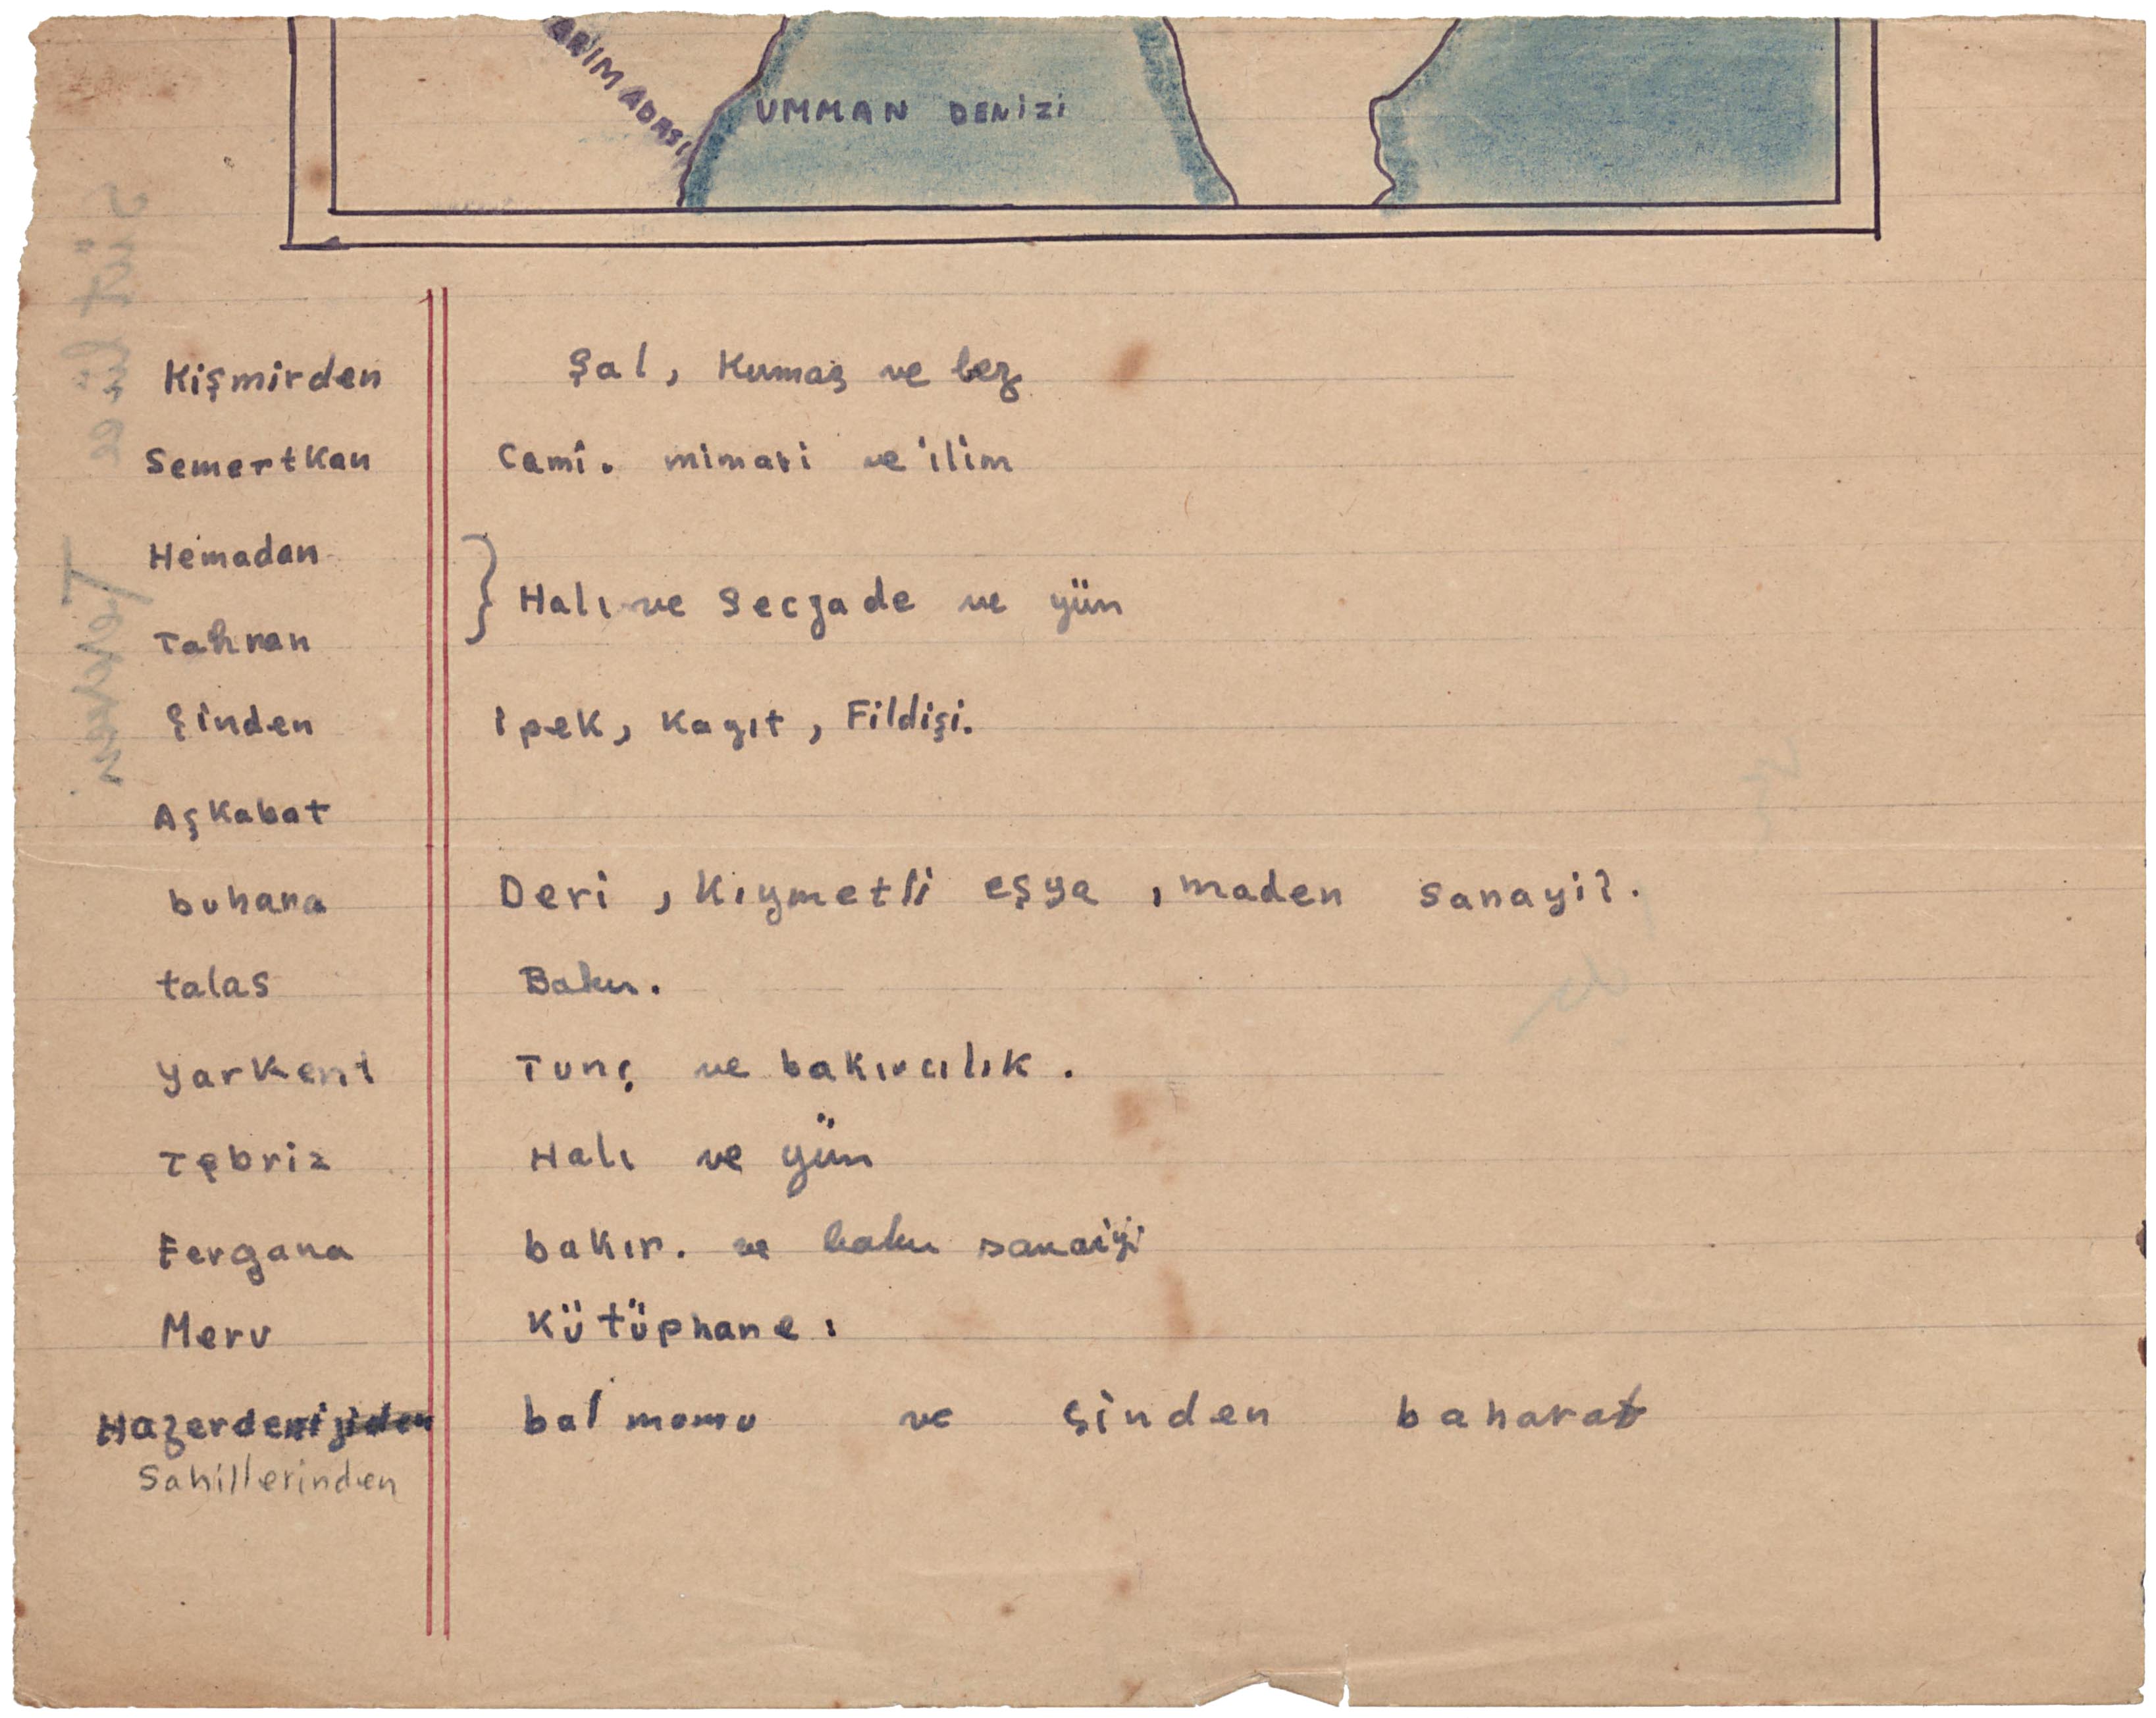 ARIM ADASI
UMMAN DENİZİ
Kişmirden Şal, Kumaş ve bez
Semertkan Cami. mimari ve ilim
Hemadan
Halı ve Seczade ve yün
Tahran
Şinden ipek, Kagıt, Fildişi.
Aşkabat
buhara Deri, Kıymetli eşya, maden sanayii.
talas Bakır.
Yarkent Tunç ve bakırcılık.
Tebriz Halı ve yün
Fergana bakır. ve bakır sanaiyi
Merv Kütüphane.
Hazerdenizden bal momu ve Şinden baharat
Sahillerinden